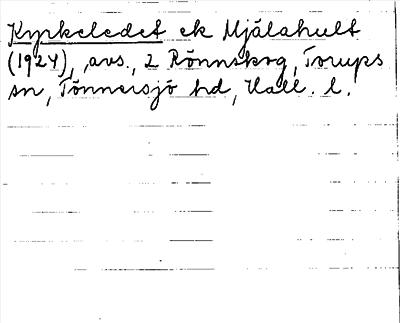 Kyrkeledet ek Mjälahult
(1924), avs., 2 Rönnskog, Torups
sn, Tönnersjö hd, Hall. l.